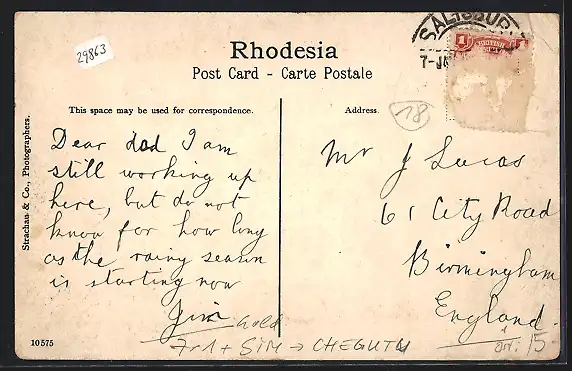 29863
SALISBURY
7-JA
1
Rhodesia
Post Card - Carte Postale
This space may be used for correspondence.
Address.
18
Strachan & Co., Photographers.
Dear dad I am
still working up
here, but do not
know for how long
as the rainy season
is starting now
Jim
Mr J Lucas
61 City Road
Birmingham
England.
Gold
7r1 + SIM → CHEGUTU
15
10575